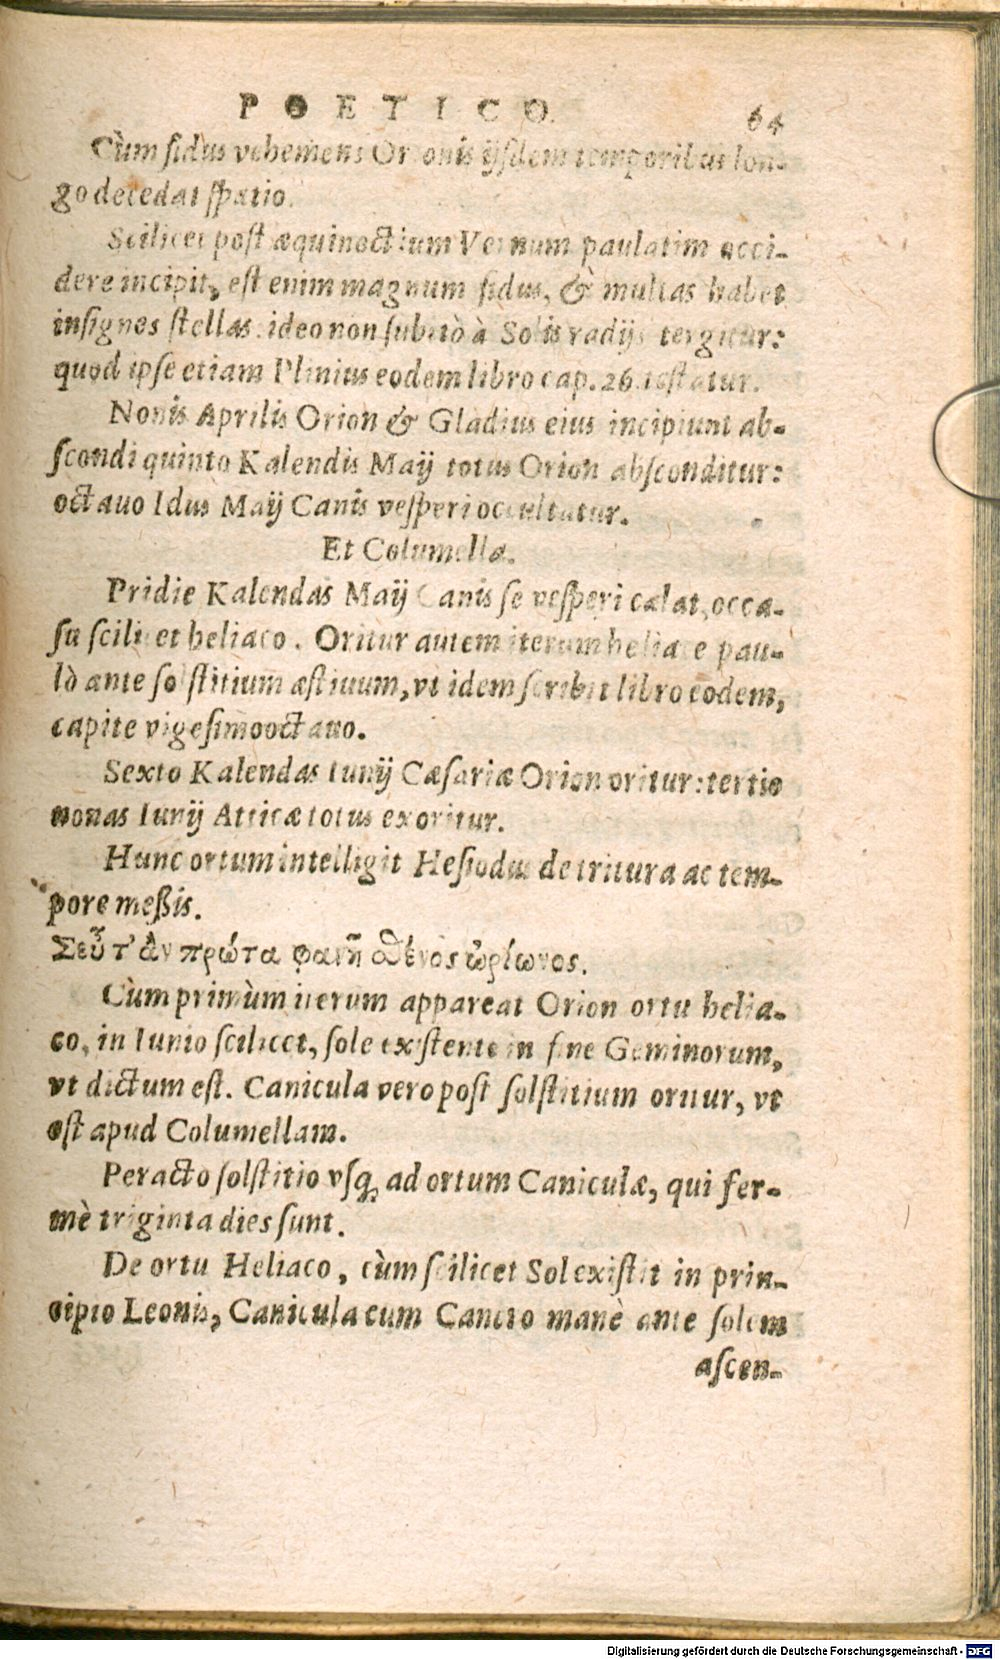 POETICO. 64
Cùm sidus vehemens Orionis ijsdem temporibus lon-
go decedat spatio.
Scilicet post æquinoctium Vernum paulatim occi-
dere incipit, est enim magnum sidus, & multas habet
insignes stellas: ideo non subitò à Solis radijs tergitur:
quod ipse etiam Plinius eodem libro cap. 26. testatur.
Nonis Aprilis Orion & Gladius eius incipiunt ab-
scondi quinto Kalendis Maij totus Orion absconditur:
octauo Idus Maij Canis vesperi occultatur.
Et Columella.
Pridie Kalendas Maij Canis se vesperi cælat, occa-
su scilicet heliaco. Oritur autem iterum heliace pau-
lò ante solstitium æstiuum, vt idem scribit libro eodem,
capite vigesimooctauo.
Sexto Kalendas Iunij Cæsariæ Orion oritur: tertio
nonas Iunij Atticæ totus exoritur.
Hunc ortum intelligit Hesiodus de tritura ac tem-
pore meßis.
Σεῦ τ' ἂν πρώτα φανῆ σθένος ὠρίωνος.
Cùm primùm iterum appareat Orion ortu helia-
co, in Iunio scilicet, sole existente in fine Geminorum,
vt dictum est. Canicula vero post solstitium oritur, vt
est apud Columellam.
Peracto solstitio vsq; ad ortum Caniculæ, qui fer-
mè triginta dies sunt.
De ortu Heliaco, cùm scilicet Sol existit in prin-
cipio Leonis, Canicula cum Cancro manè ante solem
ascen-
Digitalisierung gefördert durch die Deutsche Forschungsgemeinschaft - DFG